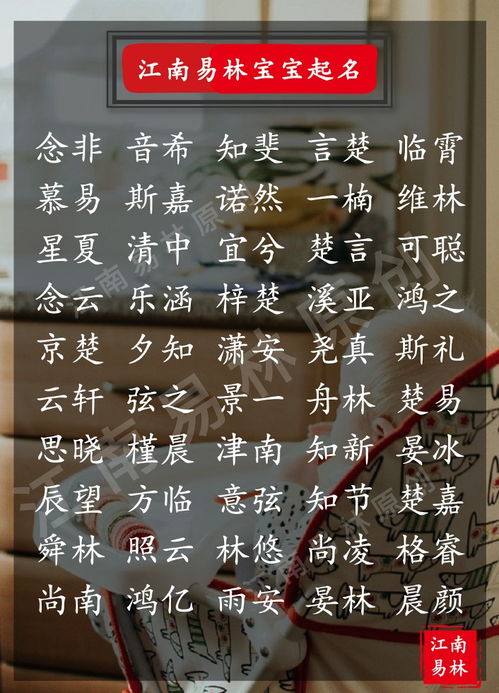 江南易林宝宝起名
念非 音希 知斐 言楚 临霄
慕易 斯嘉 诺然 一楠 维林
星夏 清中 宜兮 楚言 可聪
念云 乐涵 梓楚 溪亚 鸿之
京楚 夕知 潇安 尧真 斯礼
云轩 弦之 景一 舟林 楚易
思晓 槿晨 津南 知新 晏冰
辰望 方临 意弦 知节 楚嘉
舜林 照云 林悠 尚凌 格睿
尚南 鸿亿 雨安 晏林 晨颜
江南易林原创
江南易林原
江南易林原创
江南
易林